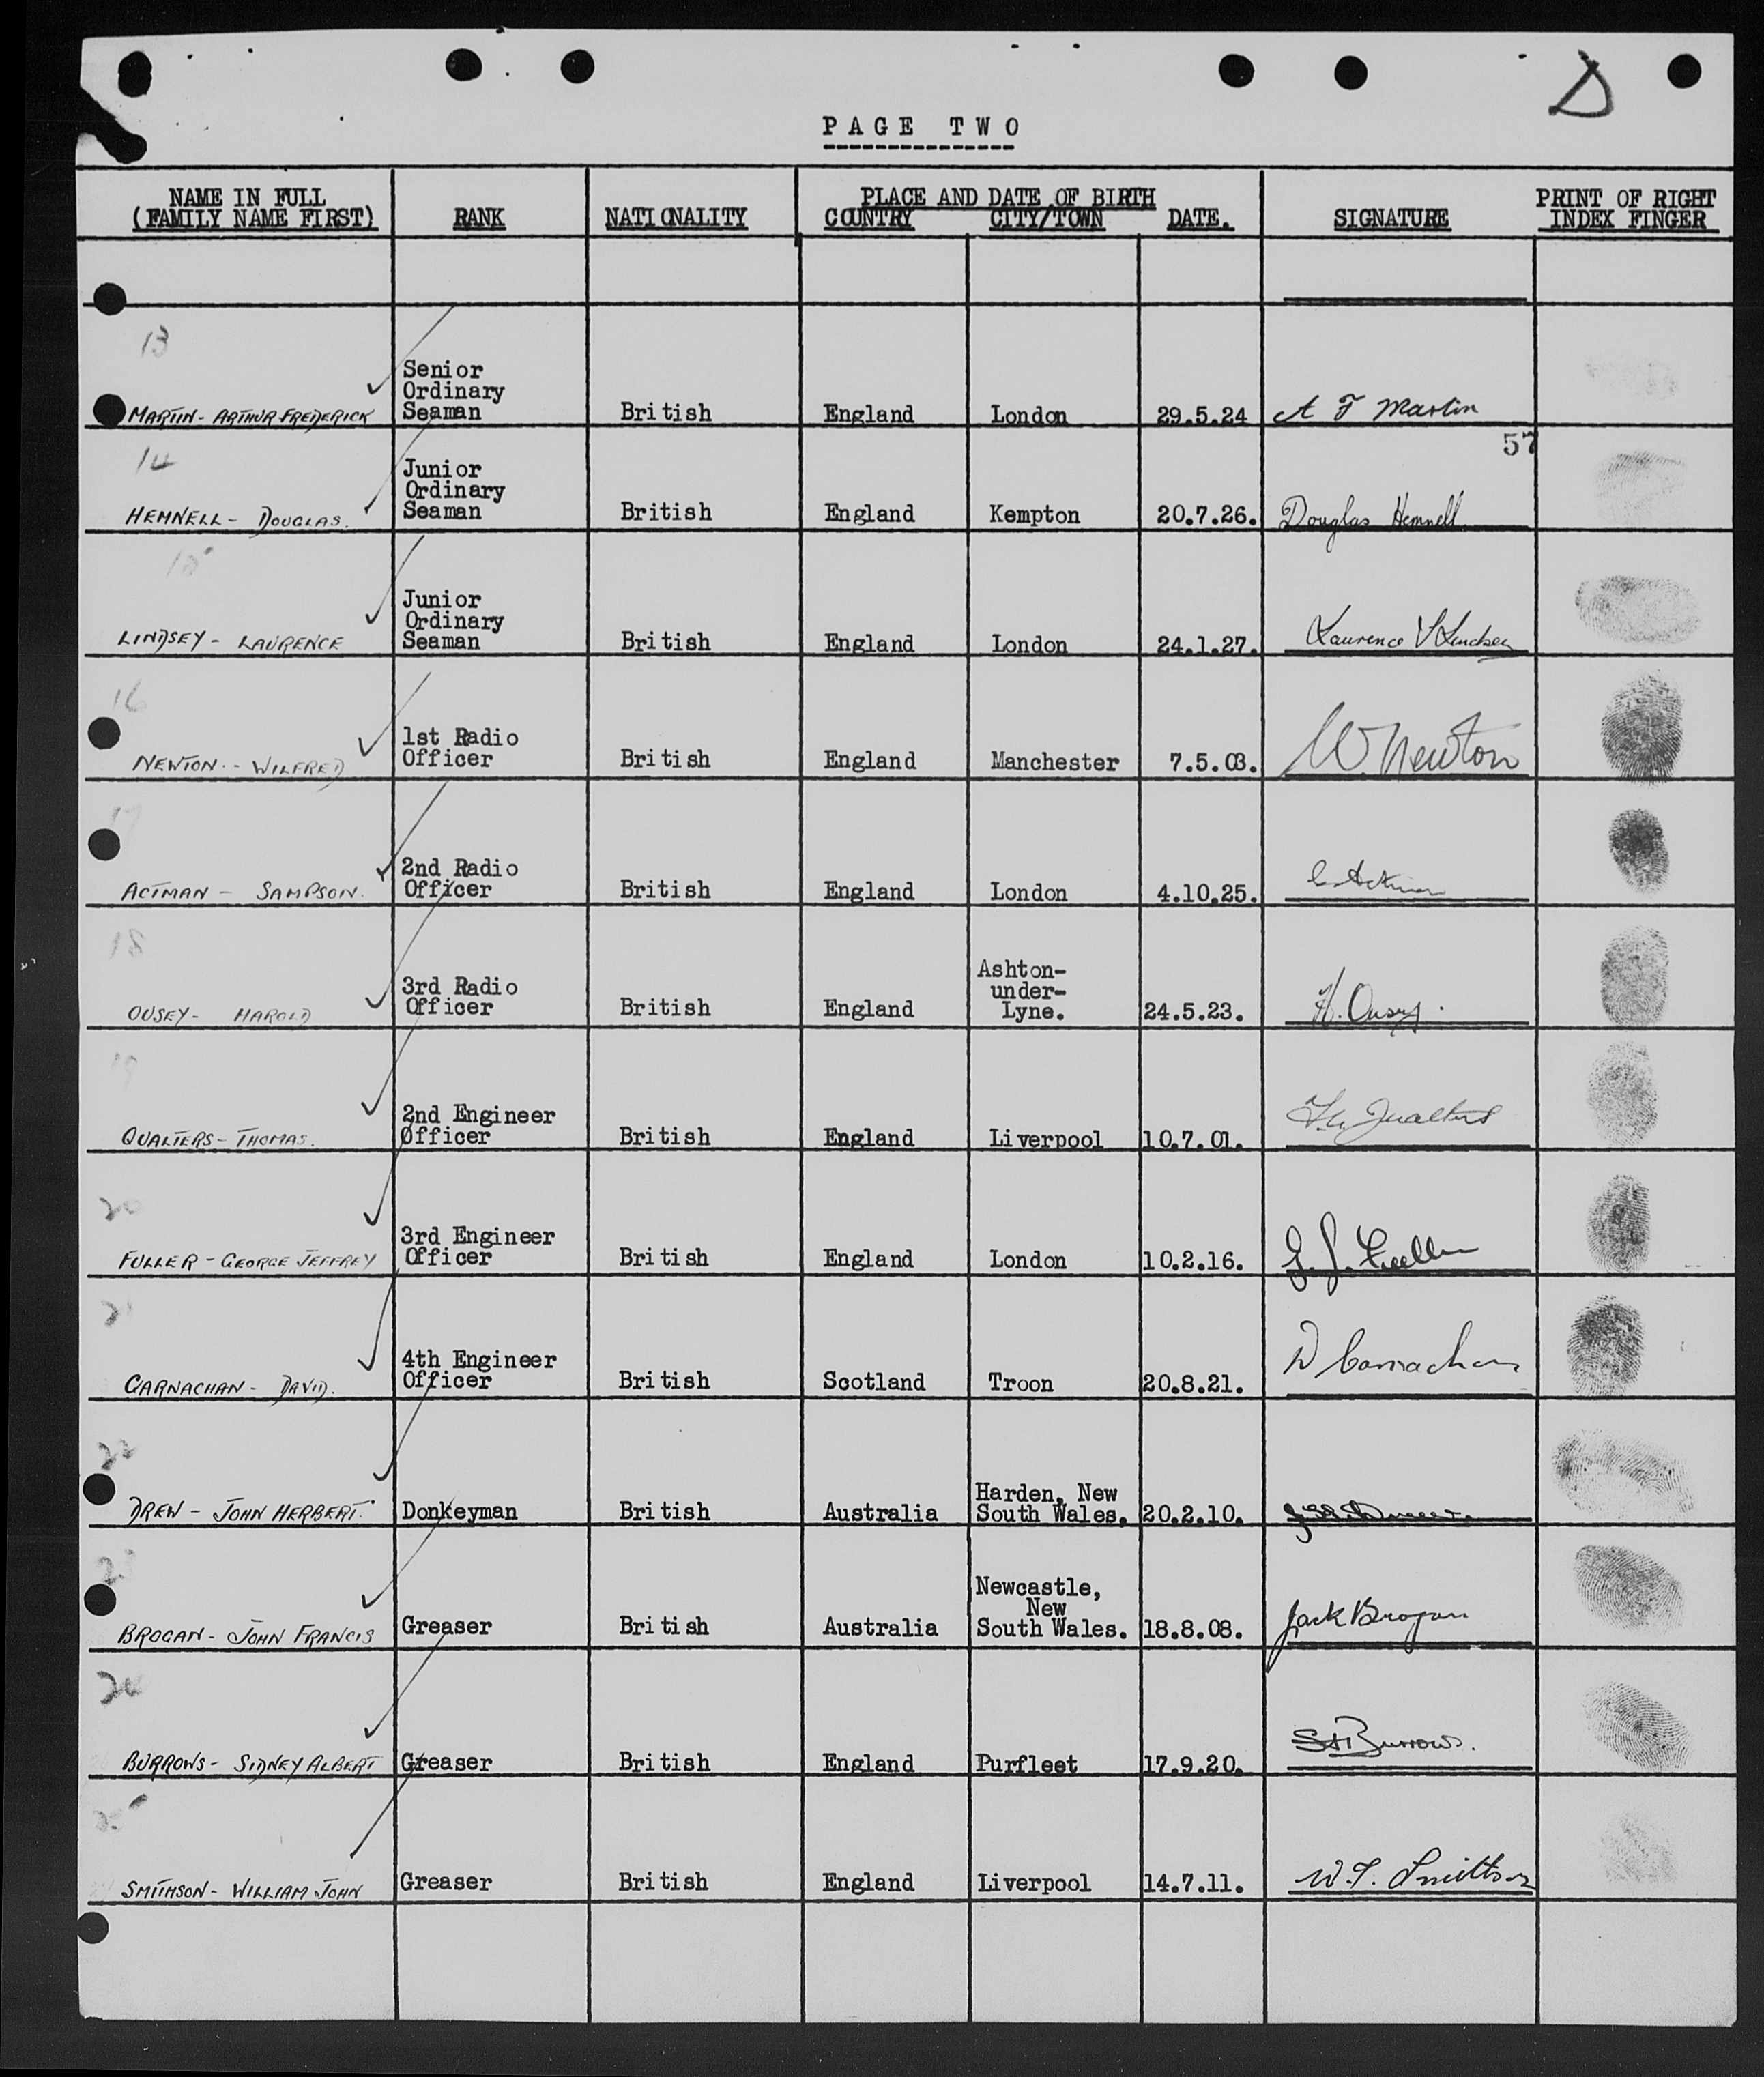 D
PAGE TWO
NAME IN FULL
(FAMILY NAME FIRST)
RANK
NATIONALITY
PLACE AND DATE OF BIRTH
COUNTRY
CITY/TOWN
DATE.
SIGNATURE
PRINT OF RIGHT
INDEX FINGER
13
MARTIN - ARTHUR FREDERICK
Senior
Ordinary
Seaman
British
England
London
29.5.24
A F Martin
57
14
HEMNELL - DOUGLAS.
Junior
Ordinary
Seaman
British
England
Kempton
20.7.26.
Douglas Hemnell
15
LINDSEY - LAURENCE
Junior
Ordinary
Seaman
British
England
London
24.1.27.
Laurence
16
NEWTON - WILFRED
1st Radio
Officer
British
England
Manchester
7.5.03.
W. Newton
17
ACTMAN - SAMPSON.
2nd Radio
Officer
British
England
London
4.10.25.
18
OUSEY - HAROLD
3rd Radio
Officer
British
England
Ashton-
under-
Lyne.
24.5.23.
H. Ousey.
19
QUALTERS - THOMAS.
2nd Engineer
Officer
British
England
Liverpool
10.7.01.
Qualters
20
FULLER - GEORGE JEFFREY
3rd Engineer
Officer
British
England
London
10.2.16.
G. J. Fuller
21
CARNACHAN - DAVID.
4th Engineer
Officer
British
Scotland
Troon
20.8.21.
D Carnachan
22
DREW - JOHN HERBERT.
Donkeyman
British
Australia
Harden, New
South Wales.
20.2.10.
23
BROGAN - JOHN FRANCIS
Greaser
British
Australia
Newcastle,
New
South Wales.
18.8.08.
Jack Brogan
24
BURROWS - SIDNEY ALBERT
Greaser
British
England
Purfleet
17.9.20.
S A Burrows.
25
SMITHSON - WILLIAM JOHN
Greaser
British
England
Liverpool
14.7.11.
W. J. Smithson